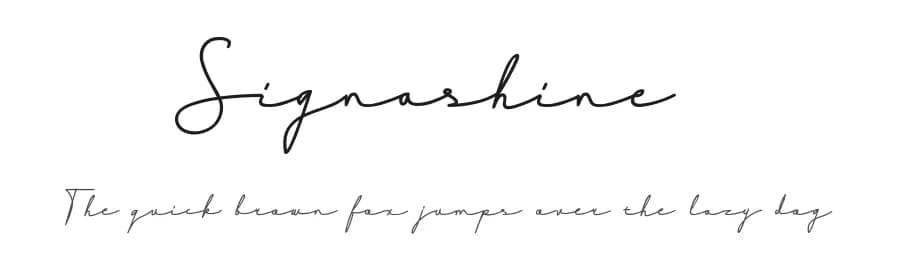 Signashine
The quick brown fox jumps over the lazy dog